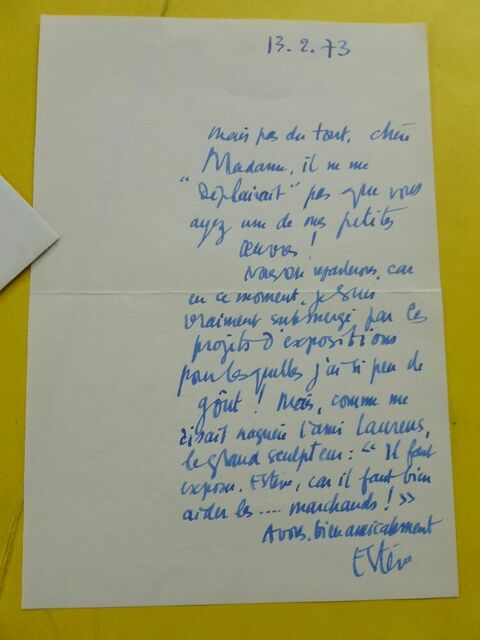 13.2.73
Mais pas du tout, chère
Madame, il ne me
"Déplairait" pas que vous
ayez une de mes petites
œuvres !
Nous en reparlerons, car
en ce moment, je suis
vraiment submergé par les
projets d'expositions
pour lesquelles j'ai si peu de
goût ! Mais, comme me
disait naguère l'ami Laurens,
le grand sculpteur : " Il faut
exposer, Estève, car il faut bien
aider les .... marchands ! »
A vous, bien amicalement
Estève